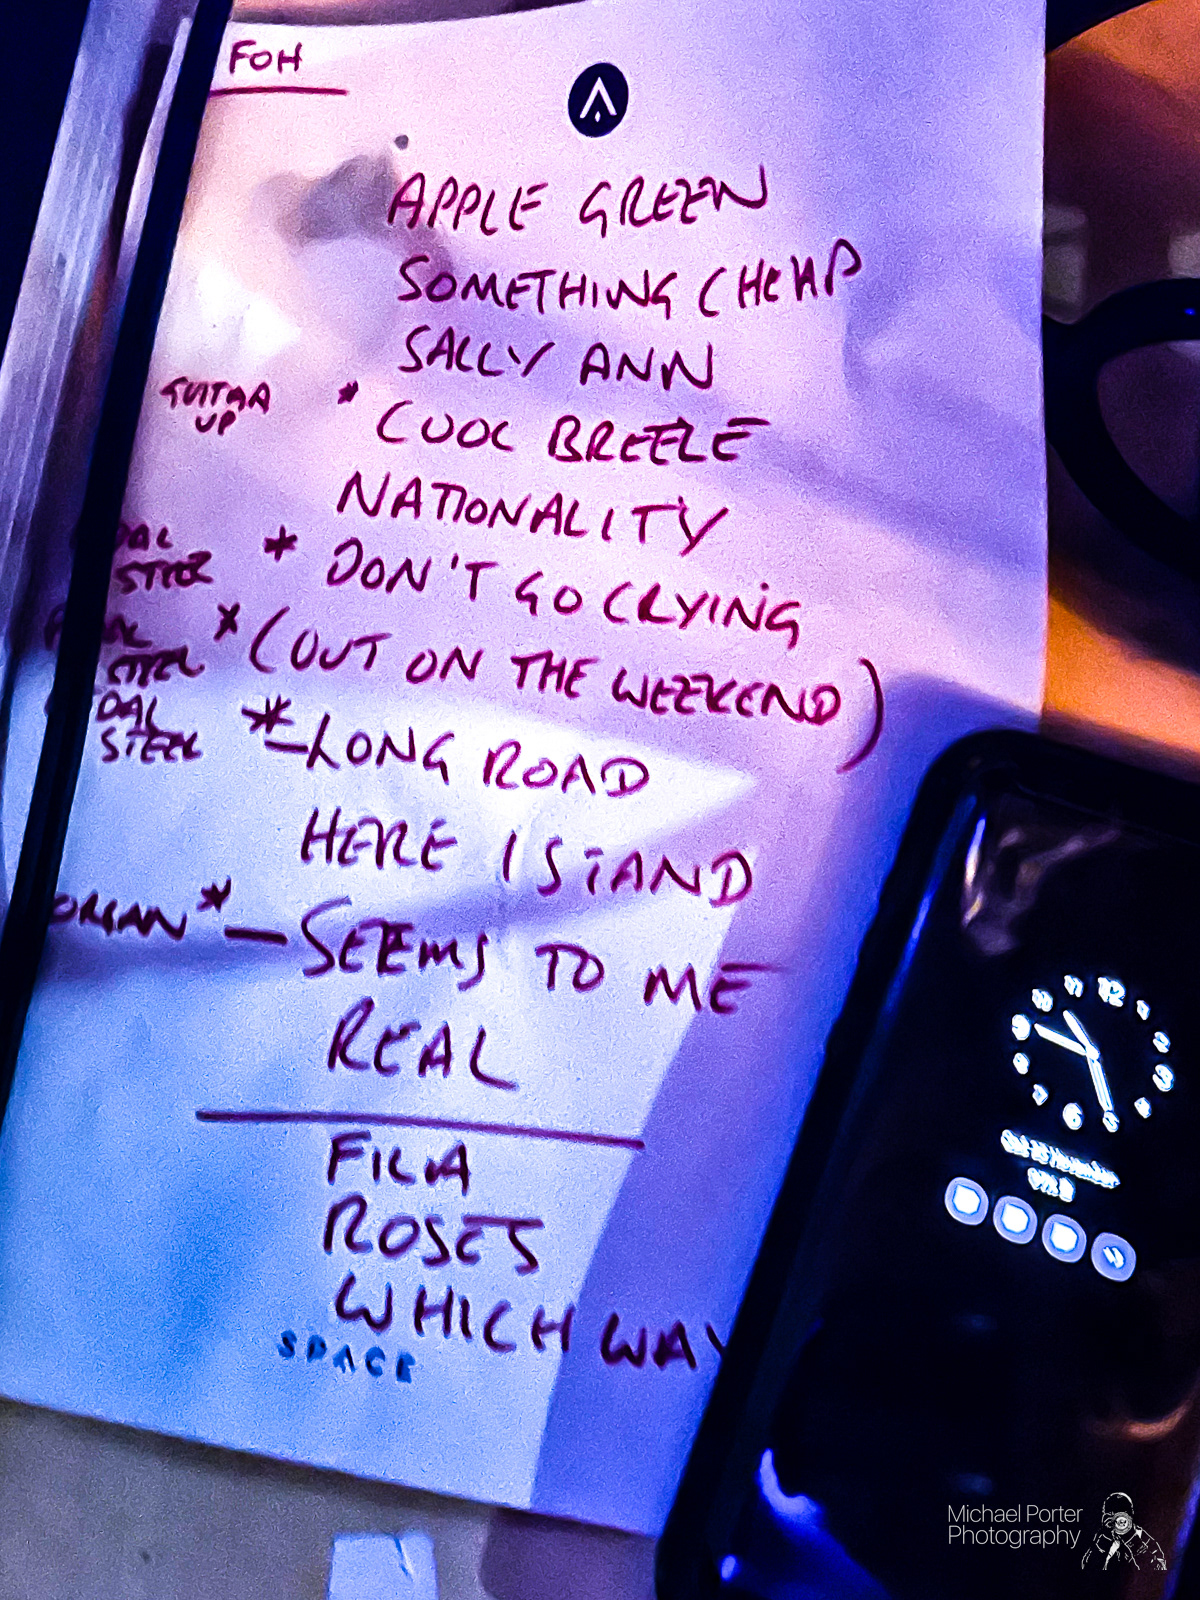 FOH
APPLE GREEN
SOMETHING CHEAP
SALLY ANN
GUITAR UP * COOL BREEZE
NATIONALITY
DAL STEEL * DON'T GO CRYING
STEEL * (OUT ON THE WEEKEND)
DAL STEEL * - LONG ROAD
HERE I STAND
ORGAN * - SEEMS TO ME
REAL
ROSES
WHICH WAY
SPACE
12
Michael Porter
Photography